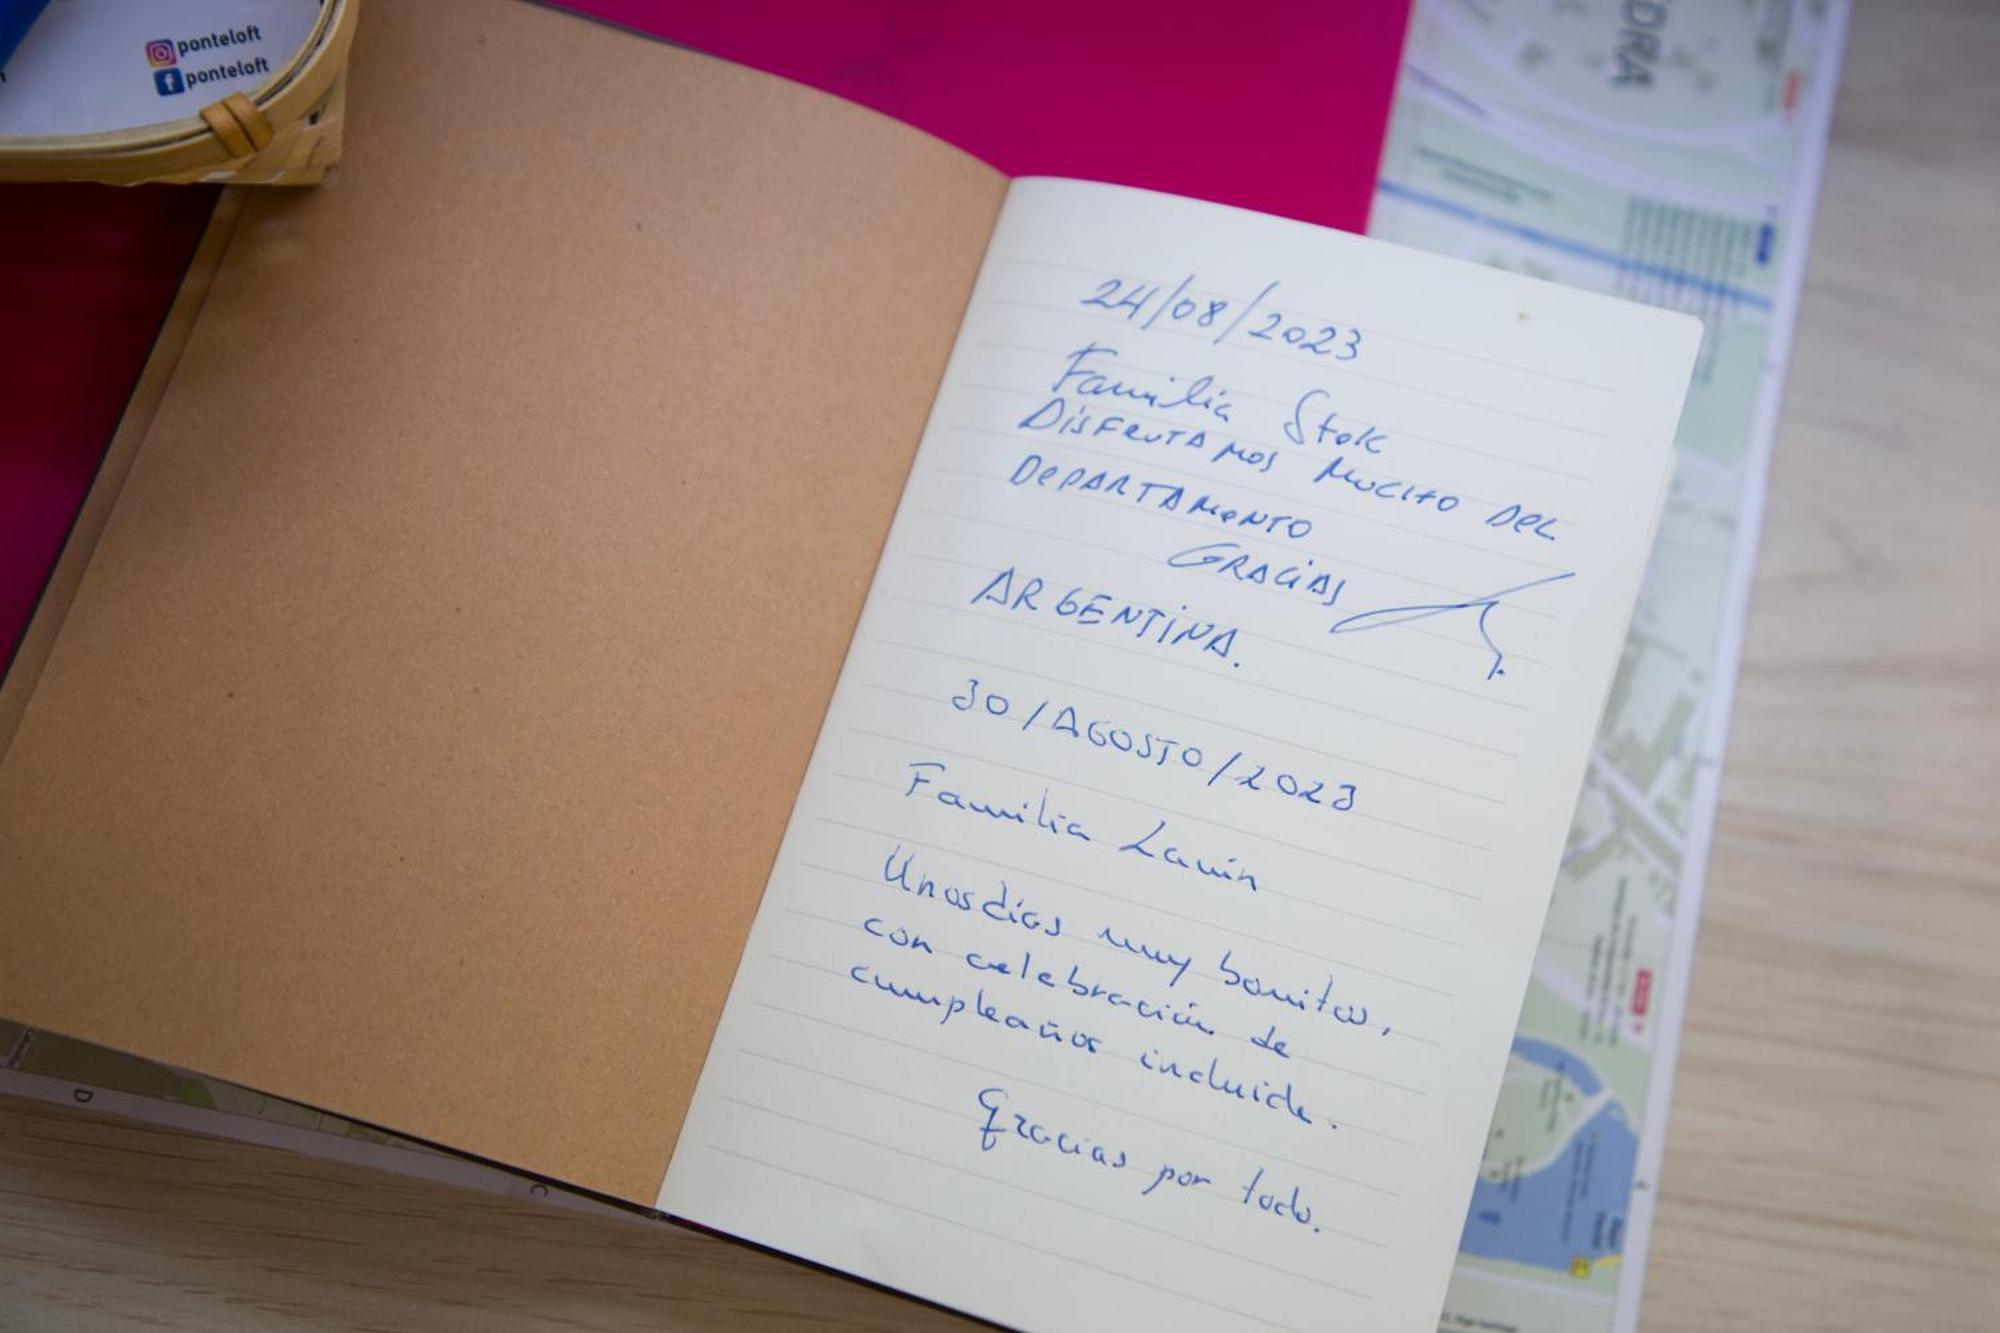 ponteloft
ponteloft
DRA
24/08/2023
Familia Stok
Disfrutamos mucho del
Departamento
Gracias
ARGENTINA.
30/AGOSTO/2023
Familia Lavín
Unos días muy bonitos,
con celebración de
cumpleaños incluida.
Gracias por todo.
D
C